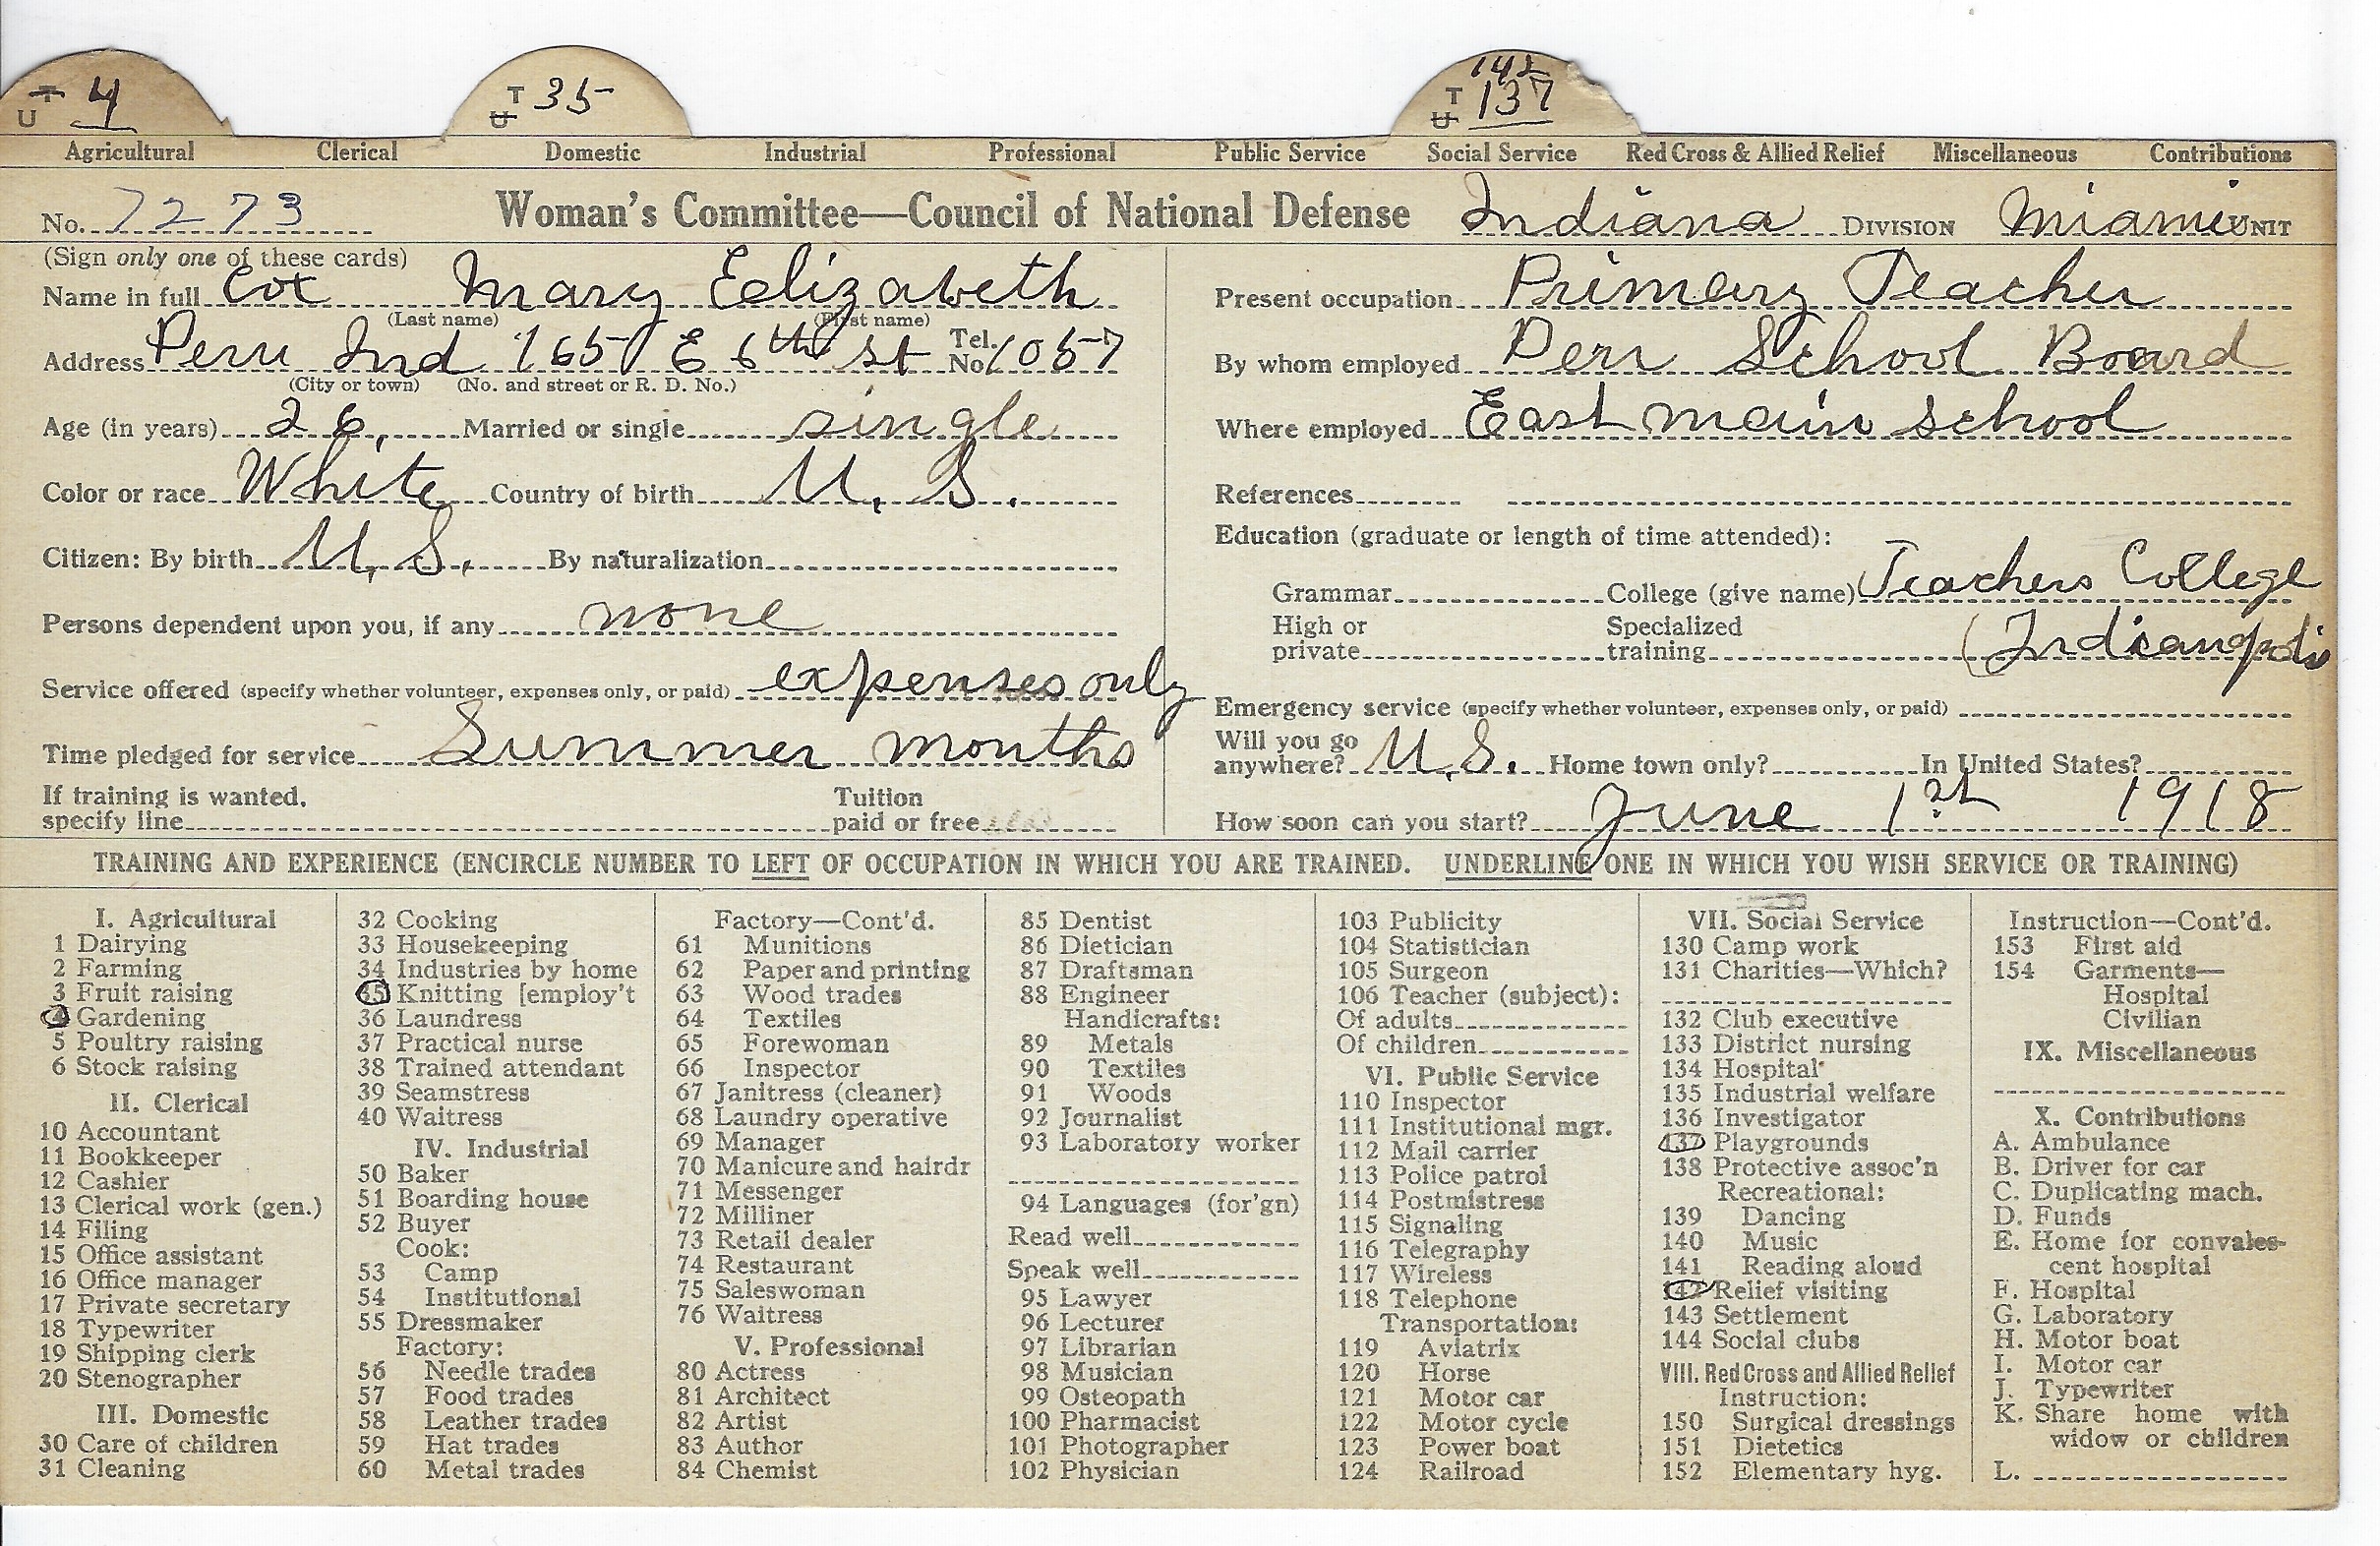 T U 4
T U 35
142
T U 137
Agricultural Clerical Domestic Industrial Professional Public Service Social Service Red Cross & Allied Relief Miscellaneous Contributions
No. 7273 Woman's Committee—Council of National Defense Indiana DIVISION Miami UNIT
(Sign only one of these cards)
Name in full Cox Mary Eelizabeth
(Last name) (First name)
Address Peru Ind 165 E 6th st Tel. No. 1057
(City or town) (No. and street or R. D. No.)
Age (in years) 26, Married or single single
Color or race White Country of birth U. S.
Citizen: By birth U. S. By naturalization
Persons dependent upon you, if any none
Service offered (specify whether volunteer, expenses only, or paid) expenses only
Time pledged for service Summer months
If training is wanted, specify line Tuition paid or free
Present occupation Primary Teacher
By whom employed Peru School Board
Where employed East main school
References
Education (graduate or length of time attended):
Grammar College (give name) Teachers College
High or private Specialized training (Indianapolis
Emergency service (specify whether volunteer, expenses only, or paid)
Will you go anywhere? U. S. Home town only? In United States?
How soon can you start? June 1st 1918
TRAINING AND EXPERIENCE (ENCIRCLE NUMBER TO LEFT OF OCCUPATION IN WHICH YOU ARE TRAINED. UNDERLINE ONE IN WHICH YOU WISH SERVICE OR TRAINING)
I. Agricultural
1 Dairying
2 Farming
3 Fruit raising
4 Gardening
5 Poultry raising
6 Stock raising
II. Clerical
10 Accountant
11 Bookkeeper
12 Cashier
13 Clerical work (gen.)
14 Filing
15 Office assistant
16 Office manager
17 Private secretary
18 Typewriter
19 Shipping clerk
20 Stenographer
III. Domestic
30 Care of children
31 Cleaning
32 Cooking
33 Housekeeping
34 Industries by home
35 Knitting [employ't
36 Laundress
37 Practical nurse
38 Trained attendant
39 Seamstress
40 Waitress
IV. Industrial
50 Baker
51 Boarding house
52 Buyer
Cook:
53 Camp
54 Institutional
55 Dressmaker
Factory:
56 Needle trades
57 Food trades
58 Leather trades
59 Hat trades
60 Metal trades
Factory—Cont'd.
61 Munitions
62 Paper and printing
63 Wood trades
64 Textiles
65 Forewoman
66 Inspector
67 Janitress (cleaner)
68 Laundry operative
69 Manager
70 Manicure and hairdr
71 Messenger
72 Milliner
73 Retail dealer
74 Restaurant
75 Saleswoman
76 Waitress
V. Professional
80 Actress
81 Architect
82 Artist
83 Author
84 Chemist
85 Dentist
86 Dietician
87 Draftsman
88 Engineer
Handicrafts:
89 Metals
90 Textiles
91 Woods
92 Journalist
93 Laboratory worker
94 Languages (for'gn)
Read well
Speak well
95 Lawyer
96 Lecturer
97 Librarian
98 Musician
99 Osteopath
100 Pharmacist
101 Photographer
102 Physician
103 Publicity
104 Statistician
105 Surgeon
106 Teacher (subject):
Of adults
Of children
VI. Public Service
110 Inspector
111 Institutional mgr.
112 Mail carrier
113 Police patrol
114 Postmistress
115 Signaling
116 Telegraphy
117 Wireless
118 Telephone
Transportation:
119 Aviatrix
120 Horse
121 Motor car
122 Motor cycle
123 Power boat
124 Railroad
VII. Social Service
130 Camp work
131 Charities—Which?
132 Club executive
133 District nursing
134 Hospital
135 Industrial welfare
136 Investigator
137 Playgrounds
138 Protective assoc'n
Recreational:
139 Dancing
140 Music
141 Reading aloud
142 Relief visiting
143 Settlement
144 Social clubs
VIII. Red Cross and Allied Relief
Instruction:
150 Surgical dressings
151 Dietetics
152 Elementary hyg.
Instruction—Cont'd.
153 First aid
154 Garments—
Hospital
Civilian
IX. Miscellaneous
X. Contributions
A. Ambulance
B. Driver for car
C. Duplicating mach.
D. Funds
E. Home for convales-
cent hospital
F. Hospital
G. Laboratory
H. Motor boat
I. Motor car
J. Typewriter
K. Share home with
widow or children
L.